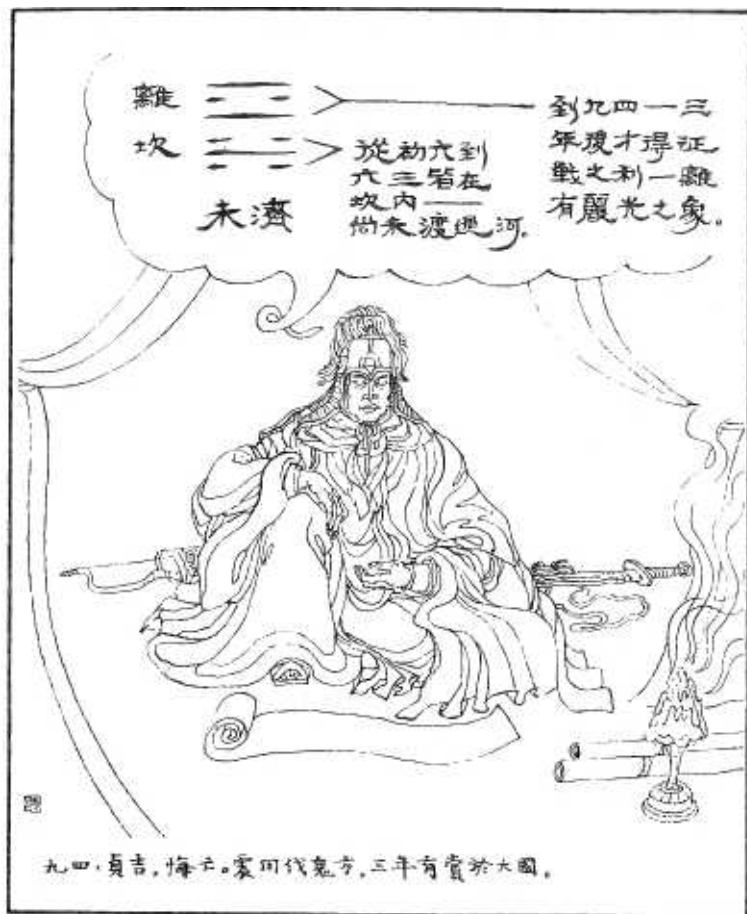 離
坎
未濟
從初六到
六三皆在
坎內——
尚未渡過河。
到九四—三
年後才得征
戰之利—離
有麗光之象。
九四·貞吉，悔亡。震用伐鬼方，三年有賞於大國。